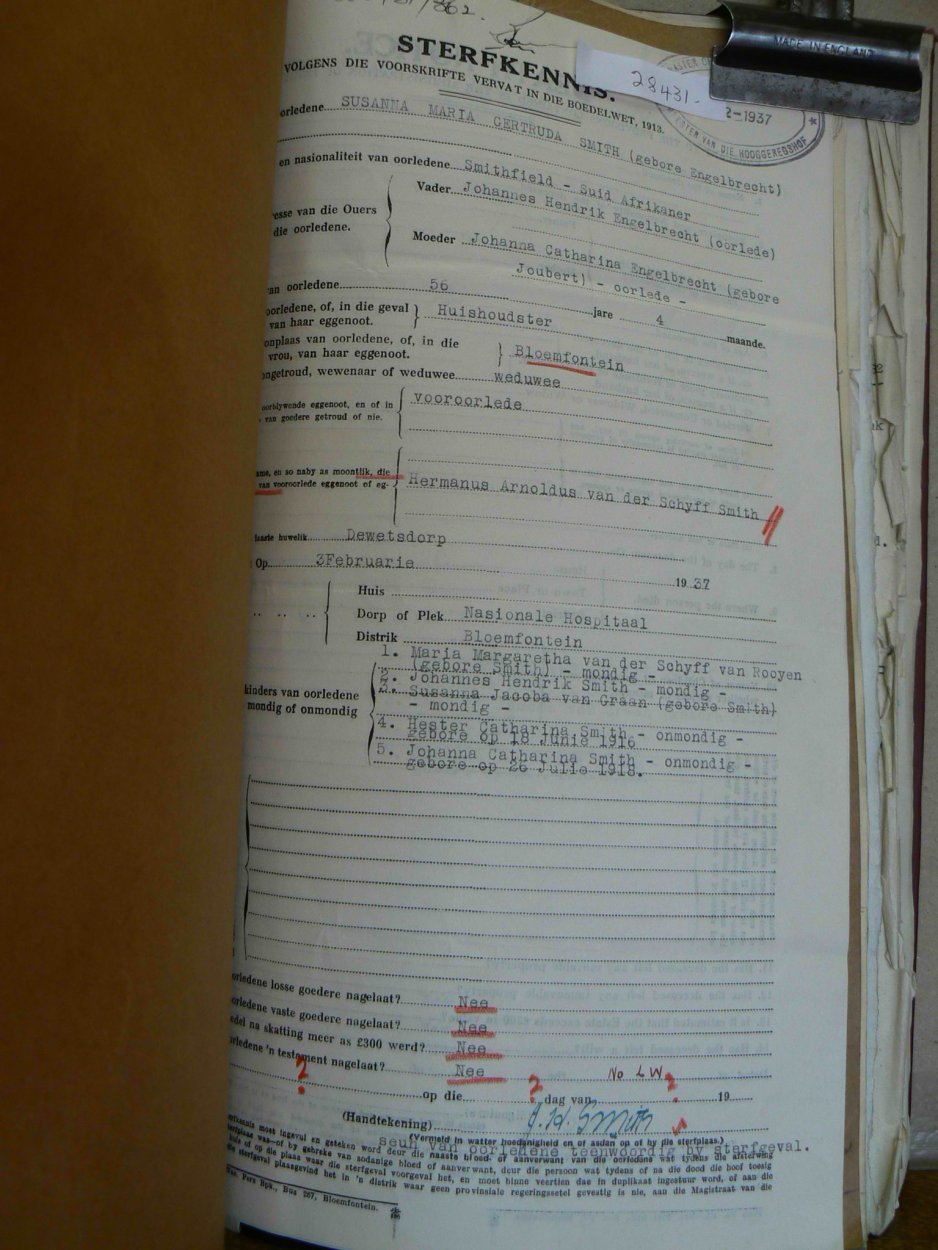 MADE IN ENGLAND
STERFKENNIS.
28431.
VOLGENS DIE VOORSKRIFTE VERVAT IN DIE BOEDELWET, 1913.
2-1937
VAN DIE HOOGGEREGSHOF
oorledene SUSANNA MARIA GERTRUDA SMITH (gebore Engelbrecht)
en nasionaliteit van oorledene Smithfield - Suid Afrikaner
Vader Johannes Hendrik Engelbrecht (oorlede)
esse van die Ouers
die oorledene.
Moeder Johanna Catharina Engelbrecht (gebore
Joubert) - oorlede -
an oorledene 56 jare 4 maande.
oorledene, of, in die geval
van haar eggenoot. Huishoudster
onplaas van oorledene, of, in die
vrou, van haar eggenoot. Bloemfontein
ongetroud, wewenaar of weduwee weduwee
oorblywende eggenoot, en of in
van goedere getroud of nie. vooroorlede
ame, en so naby as moontlik, die
van vooroorlede eggenoot of eg- Hermanus Arnoldus van der Schyff Smith
laaste huwelik Dewetsdorp
Op 3Februarie 1937
Huis
Dorp of Plek Nasionale Hospitaal
Distrik Bloemfontein
1. Maria Margaretha van der Schyff van Rooyen
(gebore Smith) - mondig -
2. Johannes Hendrik Smith - mondig -
kinders van oorledene
3. Susanna Jacoba van Graan (gebore Smith)
mondig of onmondig
- mondig -
4. Hester Catharina Smith - onmondig -
gebore op 18 Junie 1916
5. Johanna Catharina Smith - onmondig -
gebore op 26 Julie 1918.
orledene losse goedere nagelaat? Nee
orledene vaste goedere nagelaat? Nee
edel na skatting meer as £300 werd? Nee
rledene 'n testament nagelaat? Nee No L W
? op die ? dag van ? 19
(Handtekening) J. H. Smith
(Vermeld in watter hoedanigheid en of asdan op of by die sterfplaas.)
seun van oorledene teenwoordig by sterfgeval.
erfkennis moet ingevul en geteken word deur die naaste bloed- of aanverwant van die oorledene wat tydens die afsterwing
erfplaas was—of by gebreke van sodanige bloed of aanverwant, deur die persoon wat tydens of na die dood die hoof toesig
huis of op die plaas waar die sterfgeval voorgeval het, en moet binne veertien dae in duplikaat ingestuur word, of aan die
die sterfgeval plaasgevind het in 'n distrik waar geen provinsiale regeringssetel gevestig is nie, aan die Magistraat van die
Pers Bpk., Bus 267, Bloemfontein.